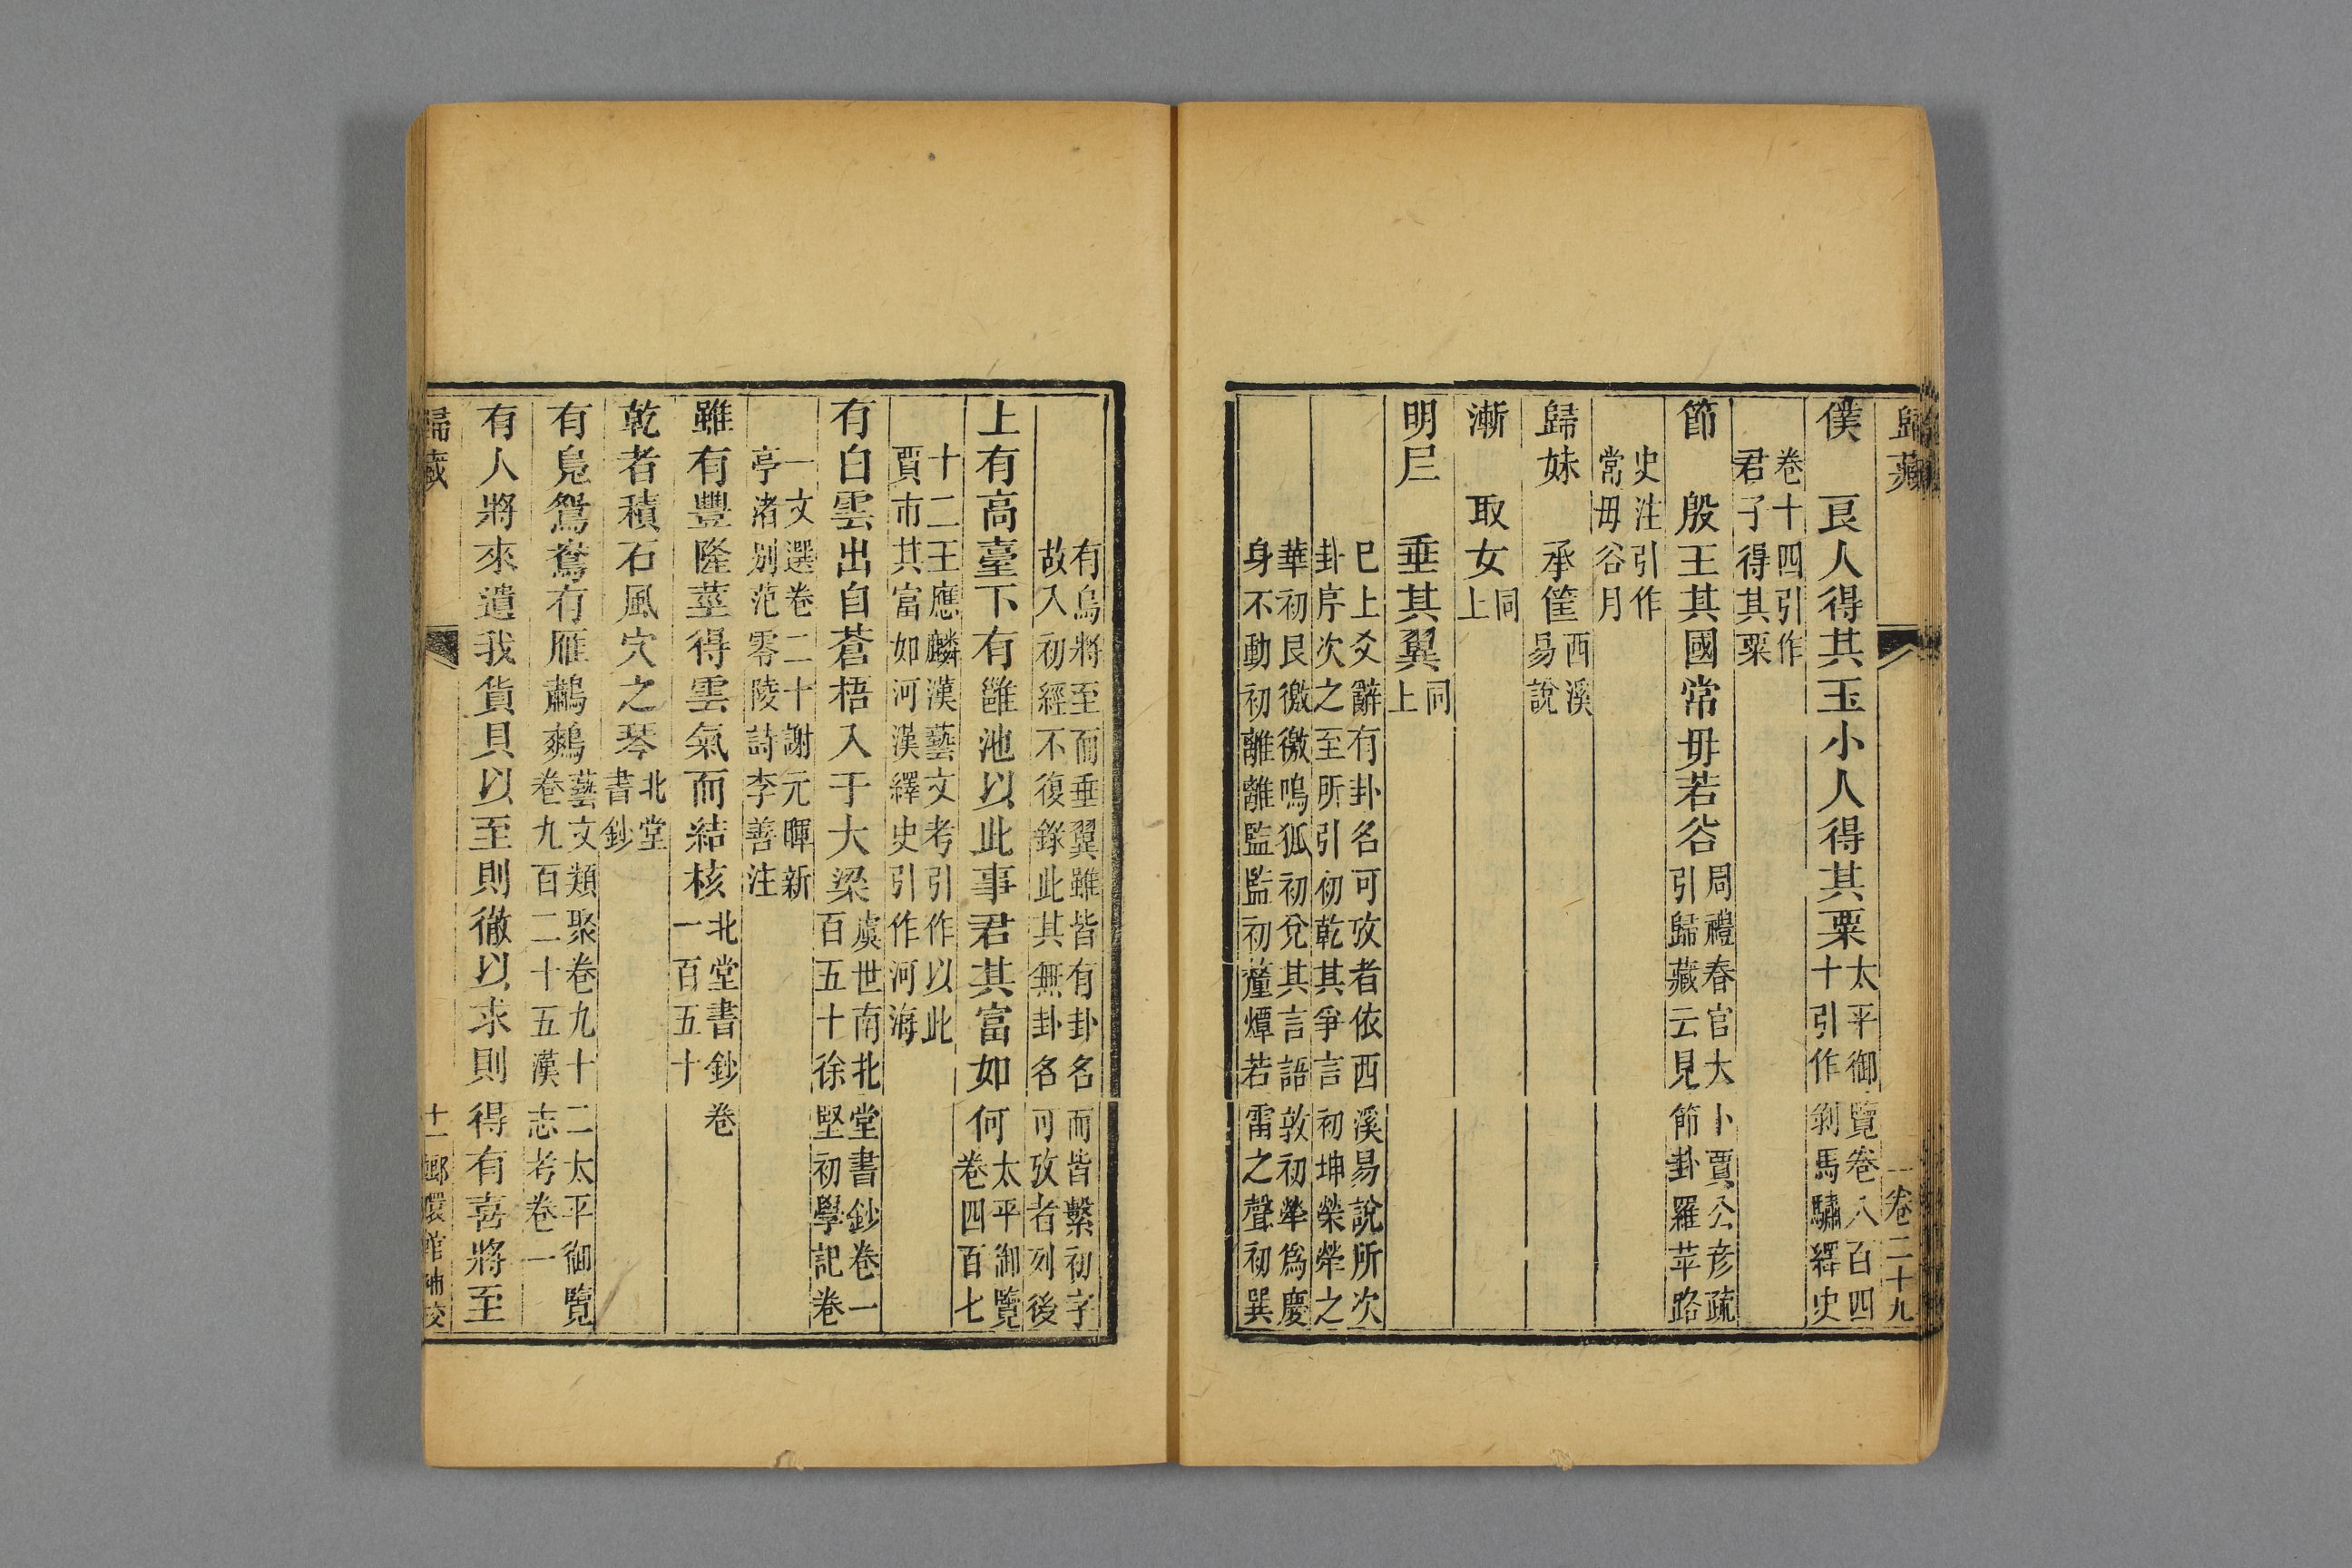 歸藏
卷二十九
僕　良人得其玉小人得其粟太平御覽卷八百四
十引作剝馬驌繹史
卷十四引作
君子得其粟
節　殷王其國常毋若谷周禮春官大卜賈公彥疏
引歸藏云見節卦羅苹路
史注引作
常毋谷月
歸妹　承筐西溪
易說
漸　取女同
上
明𡰥　垂其翼同
上
巳上爻辭有卦名可攷者依西溪易說所次
卦序次之至所引初乾其爭言初坤榮犖之
華初艮徼徼鳴狐初兌其言語敦初犖爲慶
身不動初離離監監初釐燂若雷之聲初巽
有鳥將至而垂翼雖皆有卦名而皆繫初字
故入初經不復錄此其無卦名可攷者列後
上有高臺下有雝池以此事君其富如何太平御覽
卷四百七
十二王應麟漢藝文考引作以此
賈市其富如河漢繹史引作河海
有白雲出自蒼梧入于大梁虞世南北堂書鈔卷一
百五十徐堅初學記卷
一文選卷二十謝元暉新
亭渚別范零陵詩李善注
雖有豐隆莖得雲氣而結核北堂書鈔卷
一百五十
乾者積石風穴之琴北堂
書鈔
有鳧鴛鴦有雁鷫鷞藝文類聚卷九十二太平御覽
卷九百二十五漢志考卷一
有人將來遺我貨貝以至則徹以求則得有喜將至
歸藏
十一　嫏嬛館補校